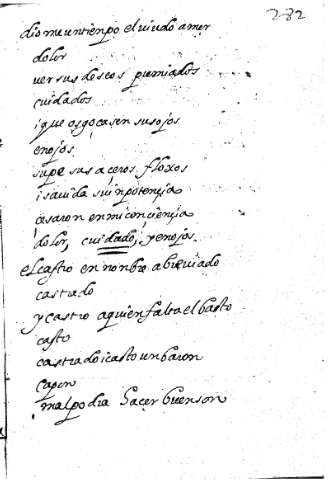 232
dio me un tienpo el viudo amor
dolor
ver sus deseos premiados
cuidados
i que os gocasen sus ojos
enojos
supe sus aceros floxos
i sauida su inpotençia
casaron en mi conçiençia
dolor, cuidado, y enojos.
el castro en nonbre abreuiado
castrado
y castro a quien falta el basto
casto
castrado i casto un baron
capon
mal podra haçer buen son